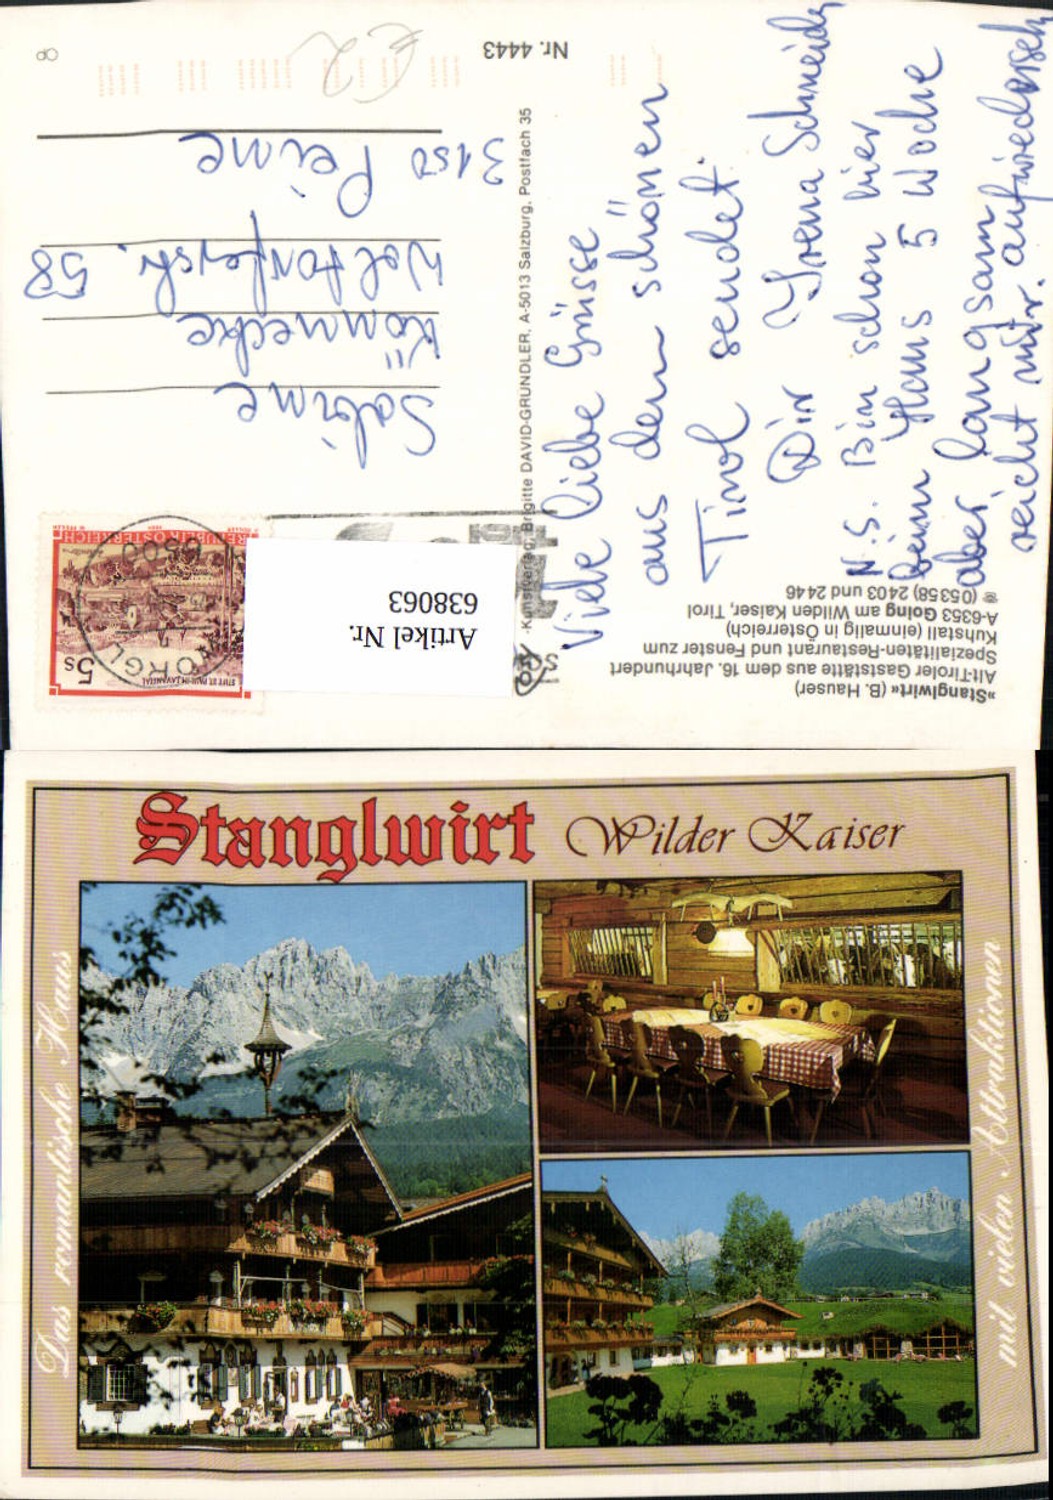 Nr. 4443
»Stanglwirt« (B. Hauser)
Alt-Tiroler Gaststätte aus dem 16. Jahrhundert
Spezialitäten-Restaurant und Fenster zum
Kuhstall (einmalig in Österreich)
A-6353 Going am Wilden Kaiser, Tirol
☎ (05358) 2403 und 2446
Viele liebe Grüsse
aus dem schönen
Tirol sendet.
Dir Irena Schneider
N.S. Bin schon hier
beim Hans 5 Woche
aber langsam
reicht mir. aufwiederseh
Kunstverlag Brigitte DAVID-GRÜNDLER, A-5013 Salzburg, Postfach 35
5s
STIFT ST. PAUL IM LAVANTTAL
REPUBLIK ÖSTERREICH
Artikel Nr.
638063
Sabine
Könnecke
58
3150 Peine
€2
Stanglwirt Wilder Kaiser
Das romantische Haus
mit vielen Attraktionen